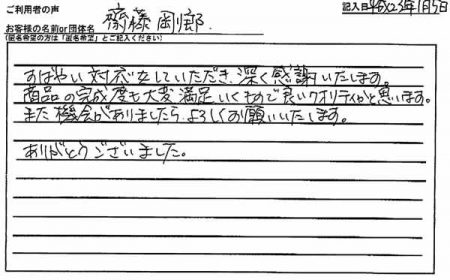 ご利用者の声
記入日 平成23年1月5日
お客様の名前or団体名 齋藤剛郷
(匿名希望の方は「匿名希望」とご記入ください)
すばやい対応をしていただき、深く感謝いたします。
商品の完成度も大変満足いくもので良いクオリティかと思います。
また機会がありましたらよろしくお願いいたします。
ありがとうございました。